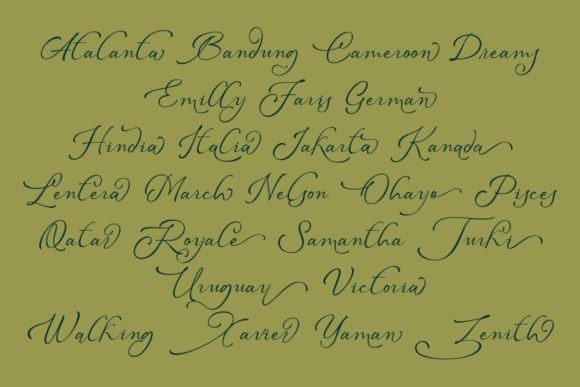 Atalanta Bandung Cameroon Dreams
Emilly Faris German
Hindia Italia Jakarta Kanada
Lentera March Nelson Ohayo Pisces
Qatar Royale Samantha Turki
Uruguay Victoria
Walking Xavier Yaman Zenith